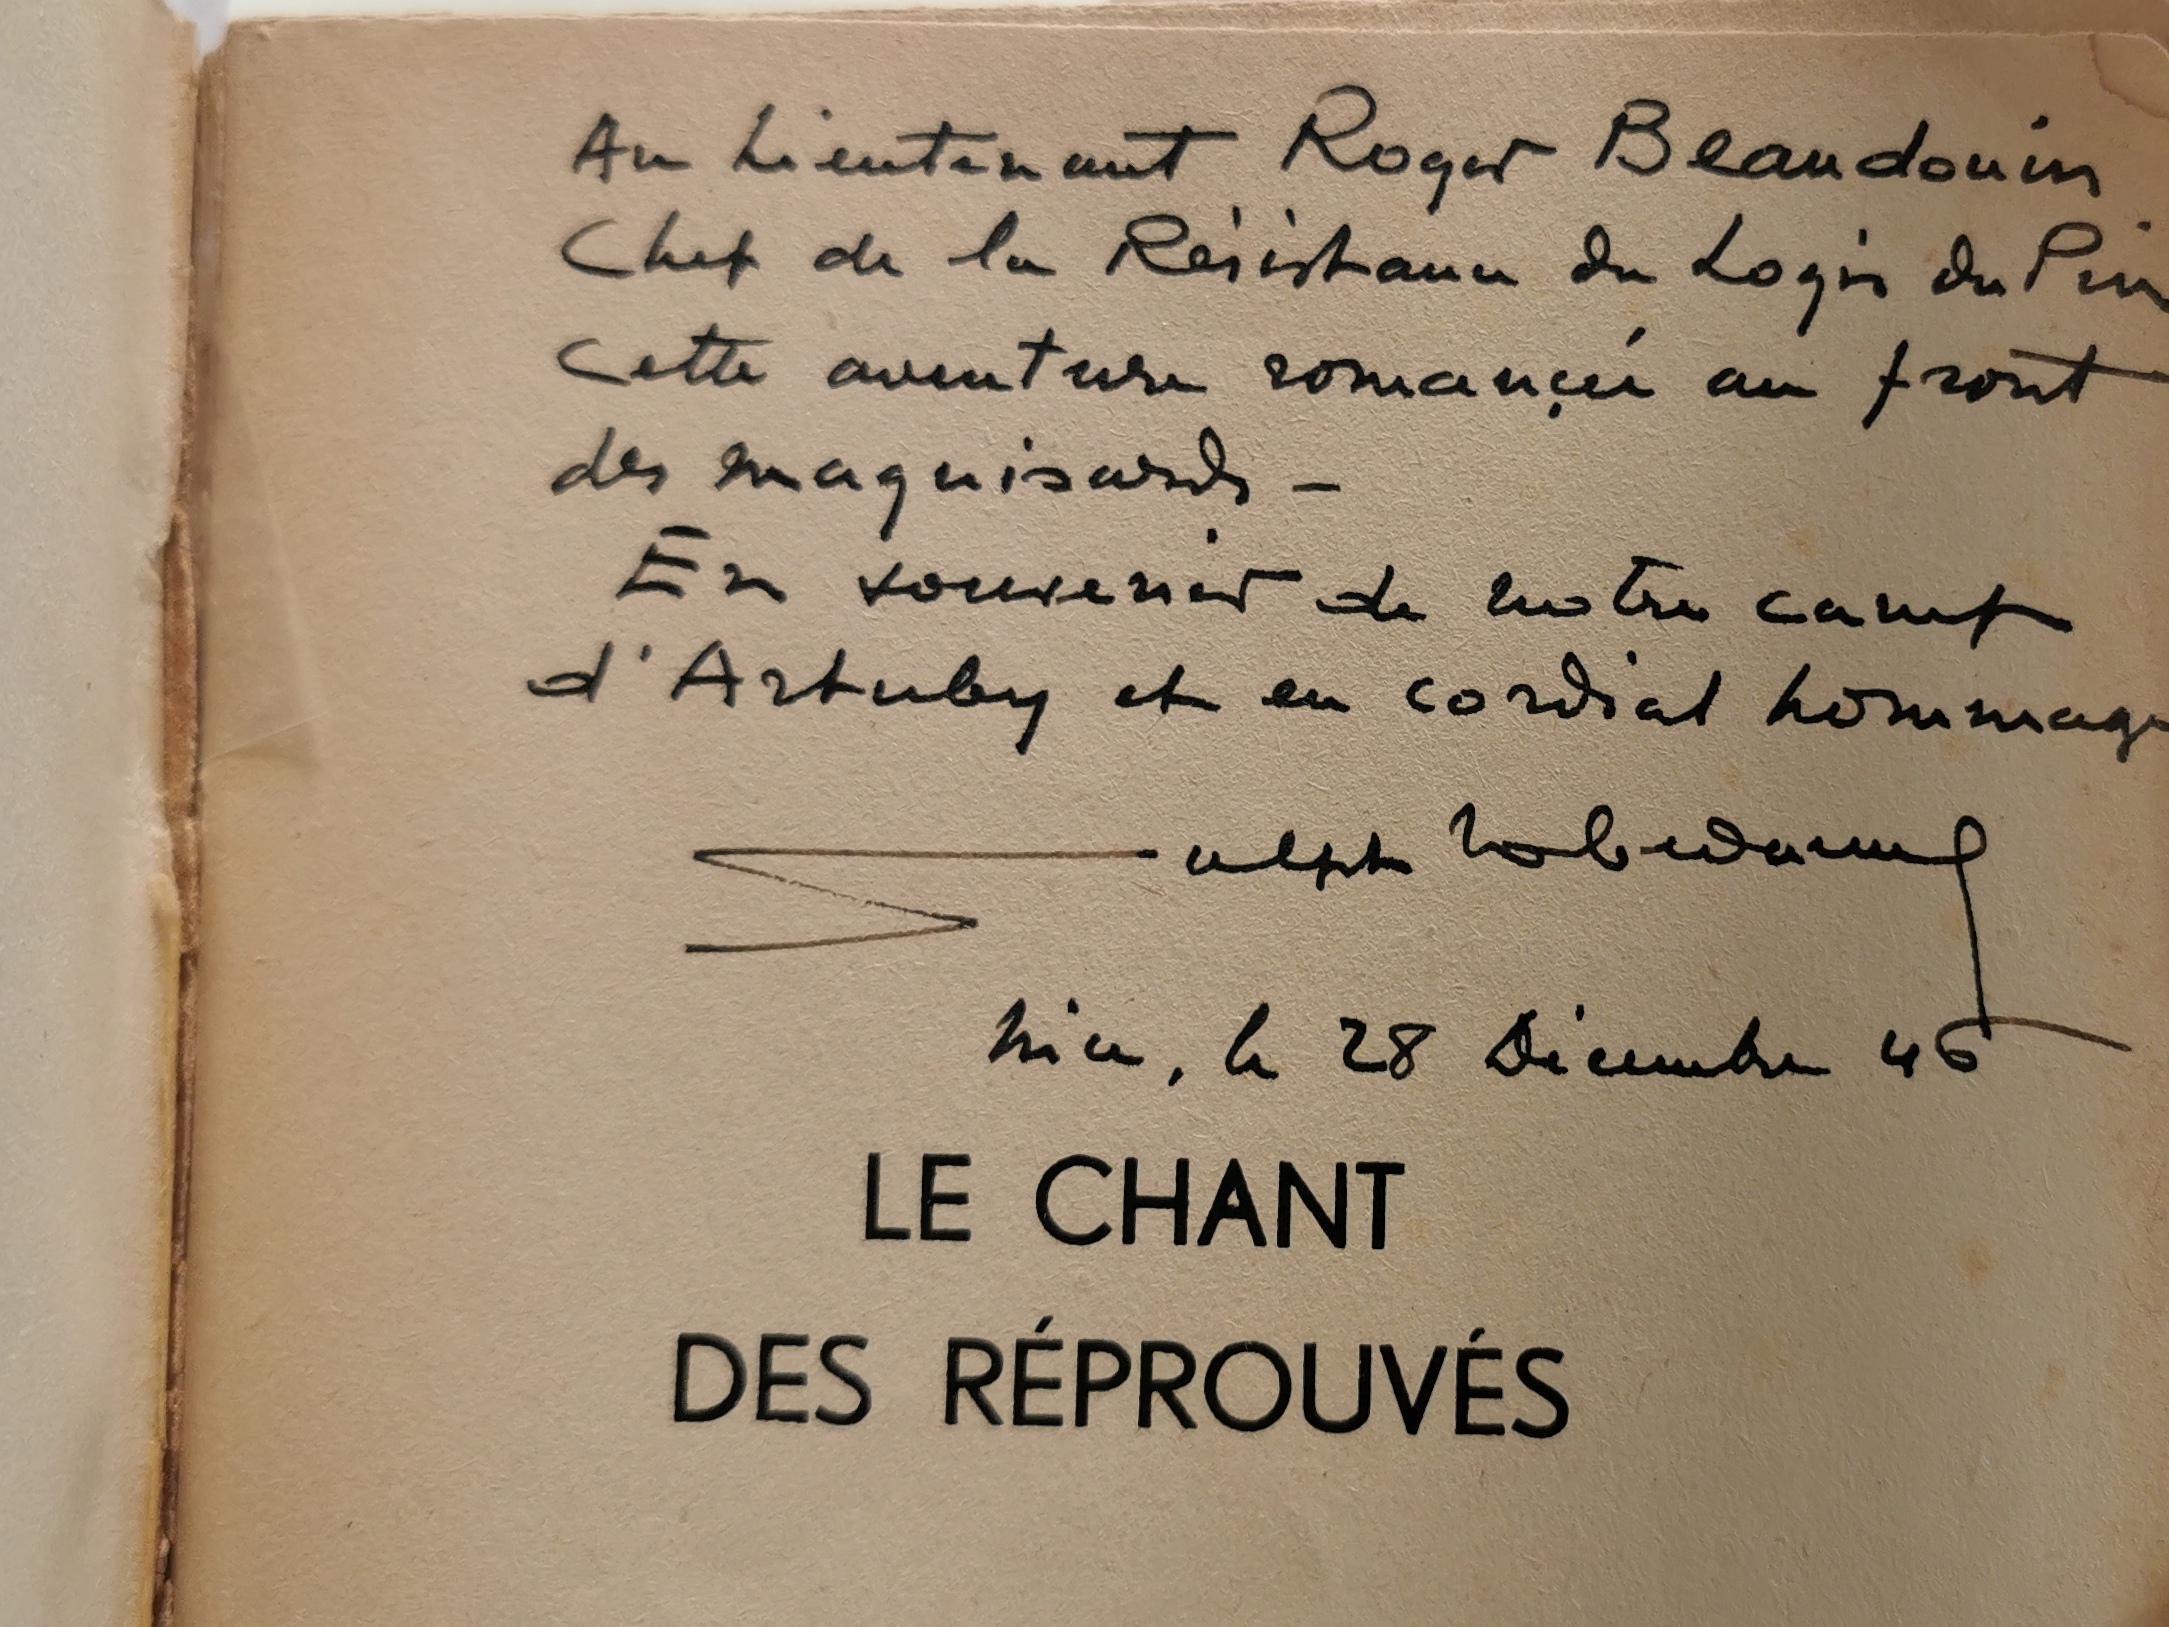 Au Lieutenant Roger Beaudouin
Chef de la Résistance du Logis du Pin
Cette aventure romancée au front
des maquisards -
En souvenir de notre camp
d'Artuby et en cordial hommage
Nice, le 28 Décembre 46
LE CHANT
DES RÉPROUVÉS